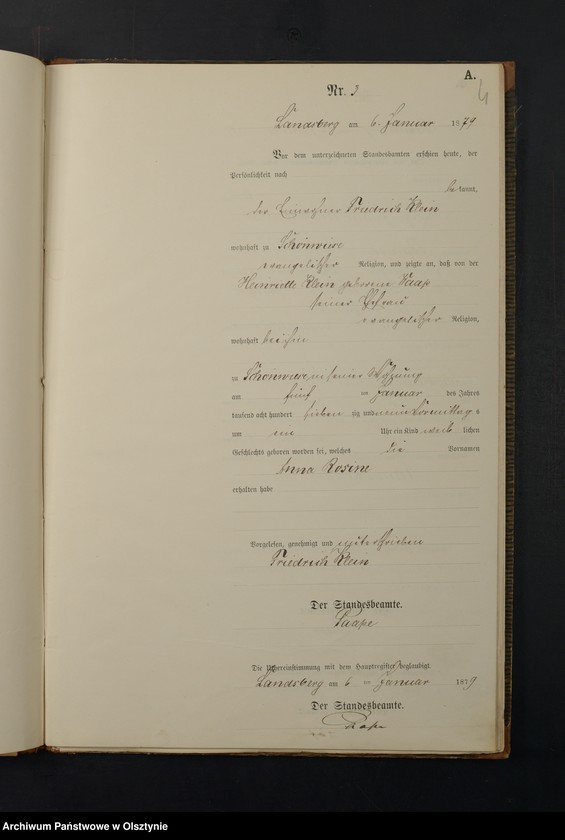 A.
4
Nr. 3
Landsberg am 6. Januar 1879
Vor dem unterzeichneten Standesbeamten erschien heute, der
Persönlichkeit nach
bekannt,
der Einwohner Friedrich Klein
wohnhaft zu Schönwiese
evangelischer Religion, und zeigte an, daß von der
Henriette Klein geborene
seiner Ehefrau
evangelischer Religion,
wohnhaft bei ihm
zu Schönwiese in seiner Wohnung
am fünf ten Januar des Jahres
tausend acht hundert sieben zig und neun Vormittags
um ein Uhr ein Kind weib lichen
Geschlechts geboren worden sei, welches die Vornamen
Anna Rosine
erhalten habe
Vorgelesen, genehmigt und unterschrieben
Friedrich Klein
Der Standesbeamte.
Paape
Die Übereinstimmung mit dem Hauptregister beglaubigt.
Landsberg am 6 ten Januar 1879
Der Standesbeamte.
Paape
Archiwum Państwowe w Olsztynie